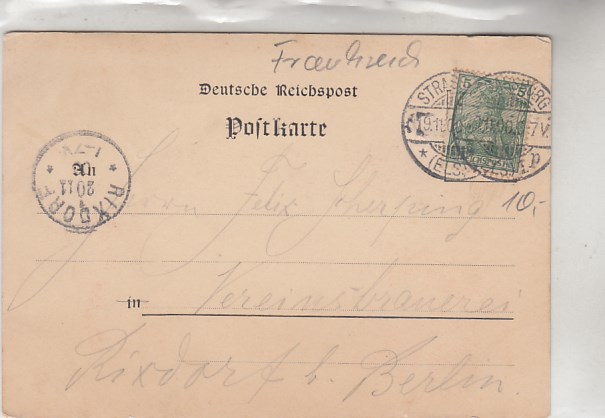 Frankreich
Deutsche Reichspost
Postkarte
STRASSBURG
(ELSASS)
5
RIXDORF
20 11
10,-
An
Herrn Felix
in Vereinsbrauerei
Rixdorf b. Berlin.